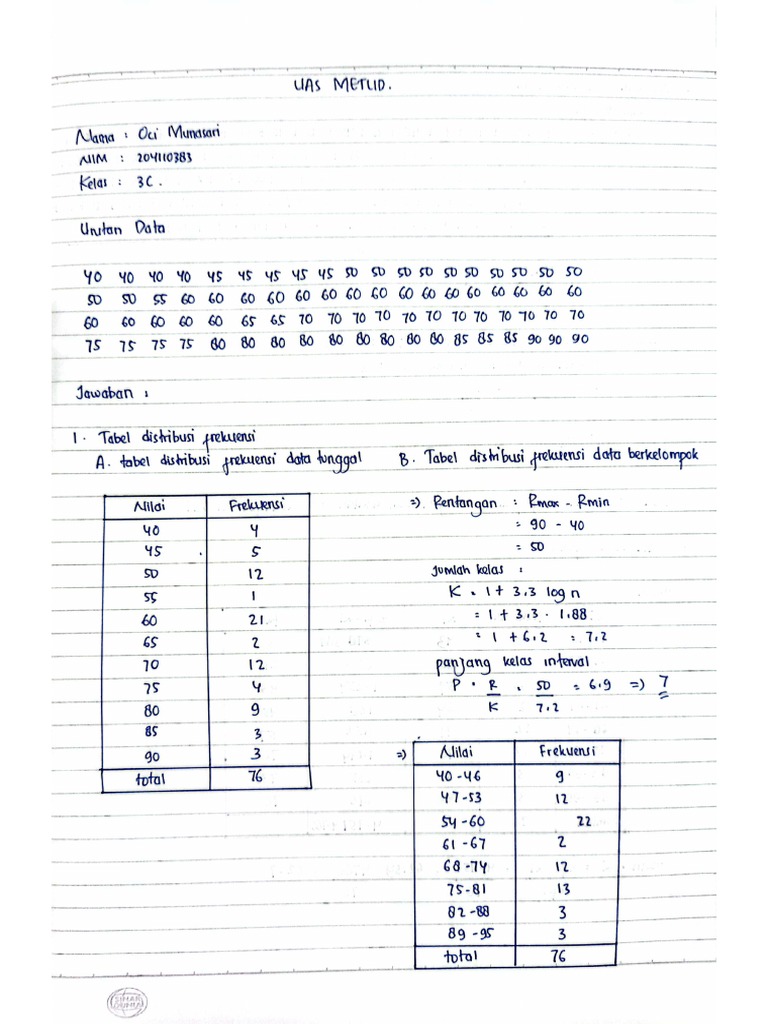 UAS METLID.
Nama : Oci Munasari
NIM : 204110383
Kelas : 3C.
Urutan Data
40 40 40 40 45 45 45 45 45 50 50 50 50 50 50 50 50 50 50
50 50 55 60 60 60 60 60 60 60 60 60 60 60 60 60 60 60 60
60 60 60 60 60 65 65 70 70 70 70 70 70 70 70 70 70 70 70
75 75 75 75 80 80 80 80 80 80 80 80 80 85 85 85 90 90 90
Jawaban :
1. Tabel distribusi frekuensi
A. tabel distribusi frekuensi data tunggal
Nilai Frekuensi
40 4
45 5
50 12
55 1
60 21
65 2
70 12
75 4
80 9
85 3
90 3
total 76
B. Tabel distribusi frekuensi data berkelompok
=) Rentangan : Rmax - Rmin
= 90 - 40
= 50
Jumlah kelas :
K = 1 + 3.3 log n
= 1 + 3.3 . 1.88
= 1 + 6.2 = 7.2
panjang kelas interval
P = R/K = 50/7.2 = 6.9 =) 7
=) Nilai Frekuensi
40-46 9
47-53 12
54-60 22
61-67 2
68-74 12
75-81 13
82-88 3
89-95 3
total 76
SINAR DUNIA